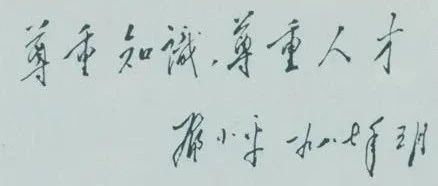 尊重知識,尊重人才
鄧小平 一九八七年三月